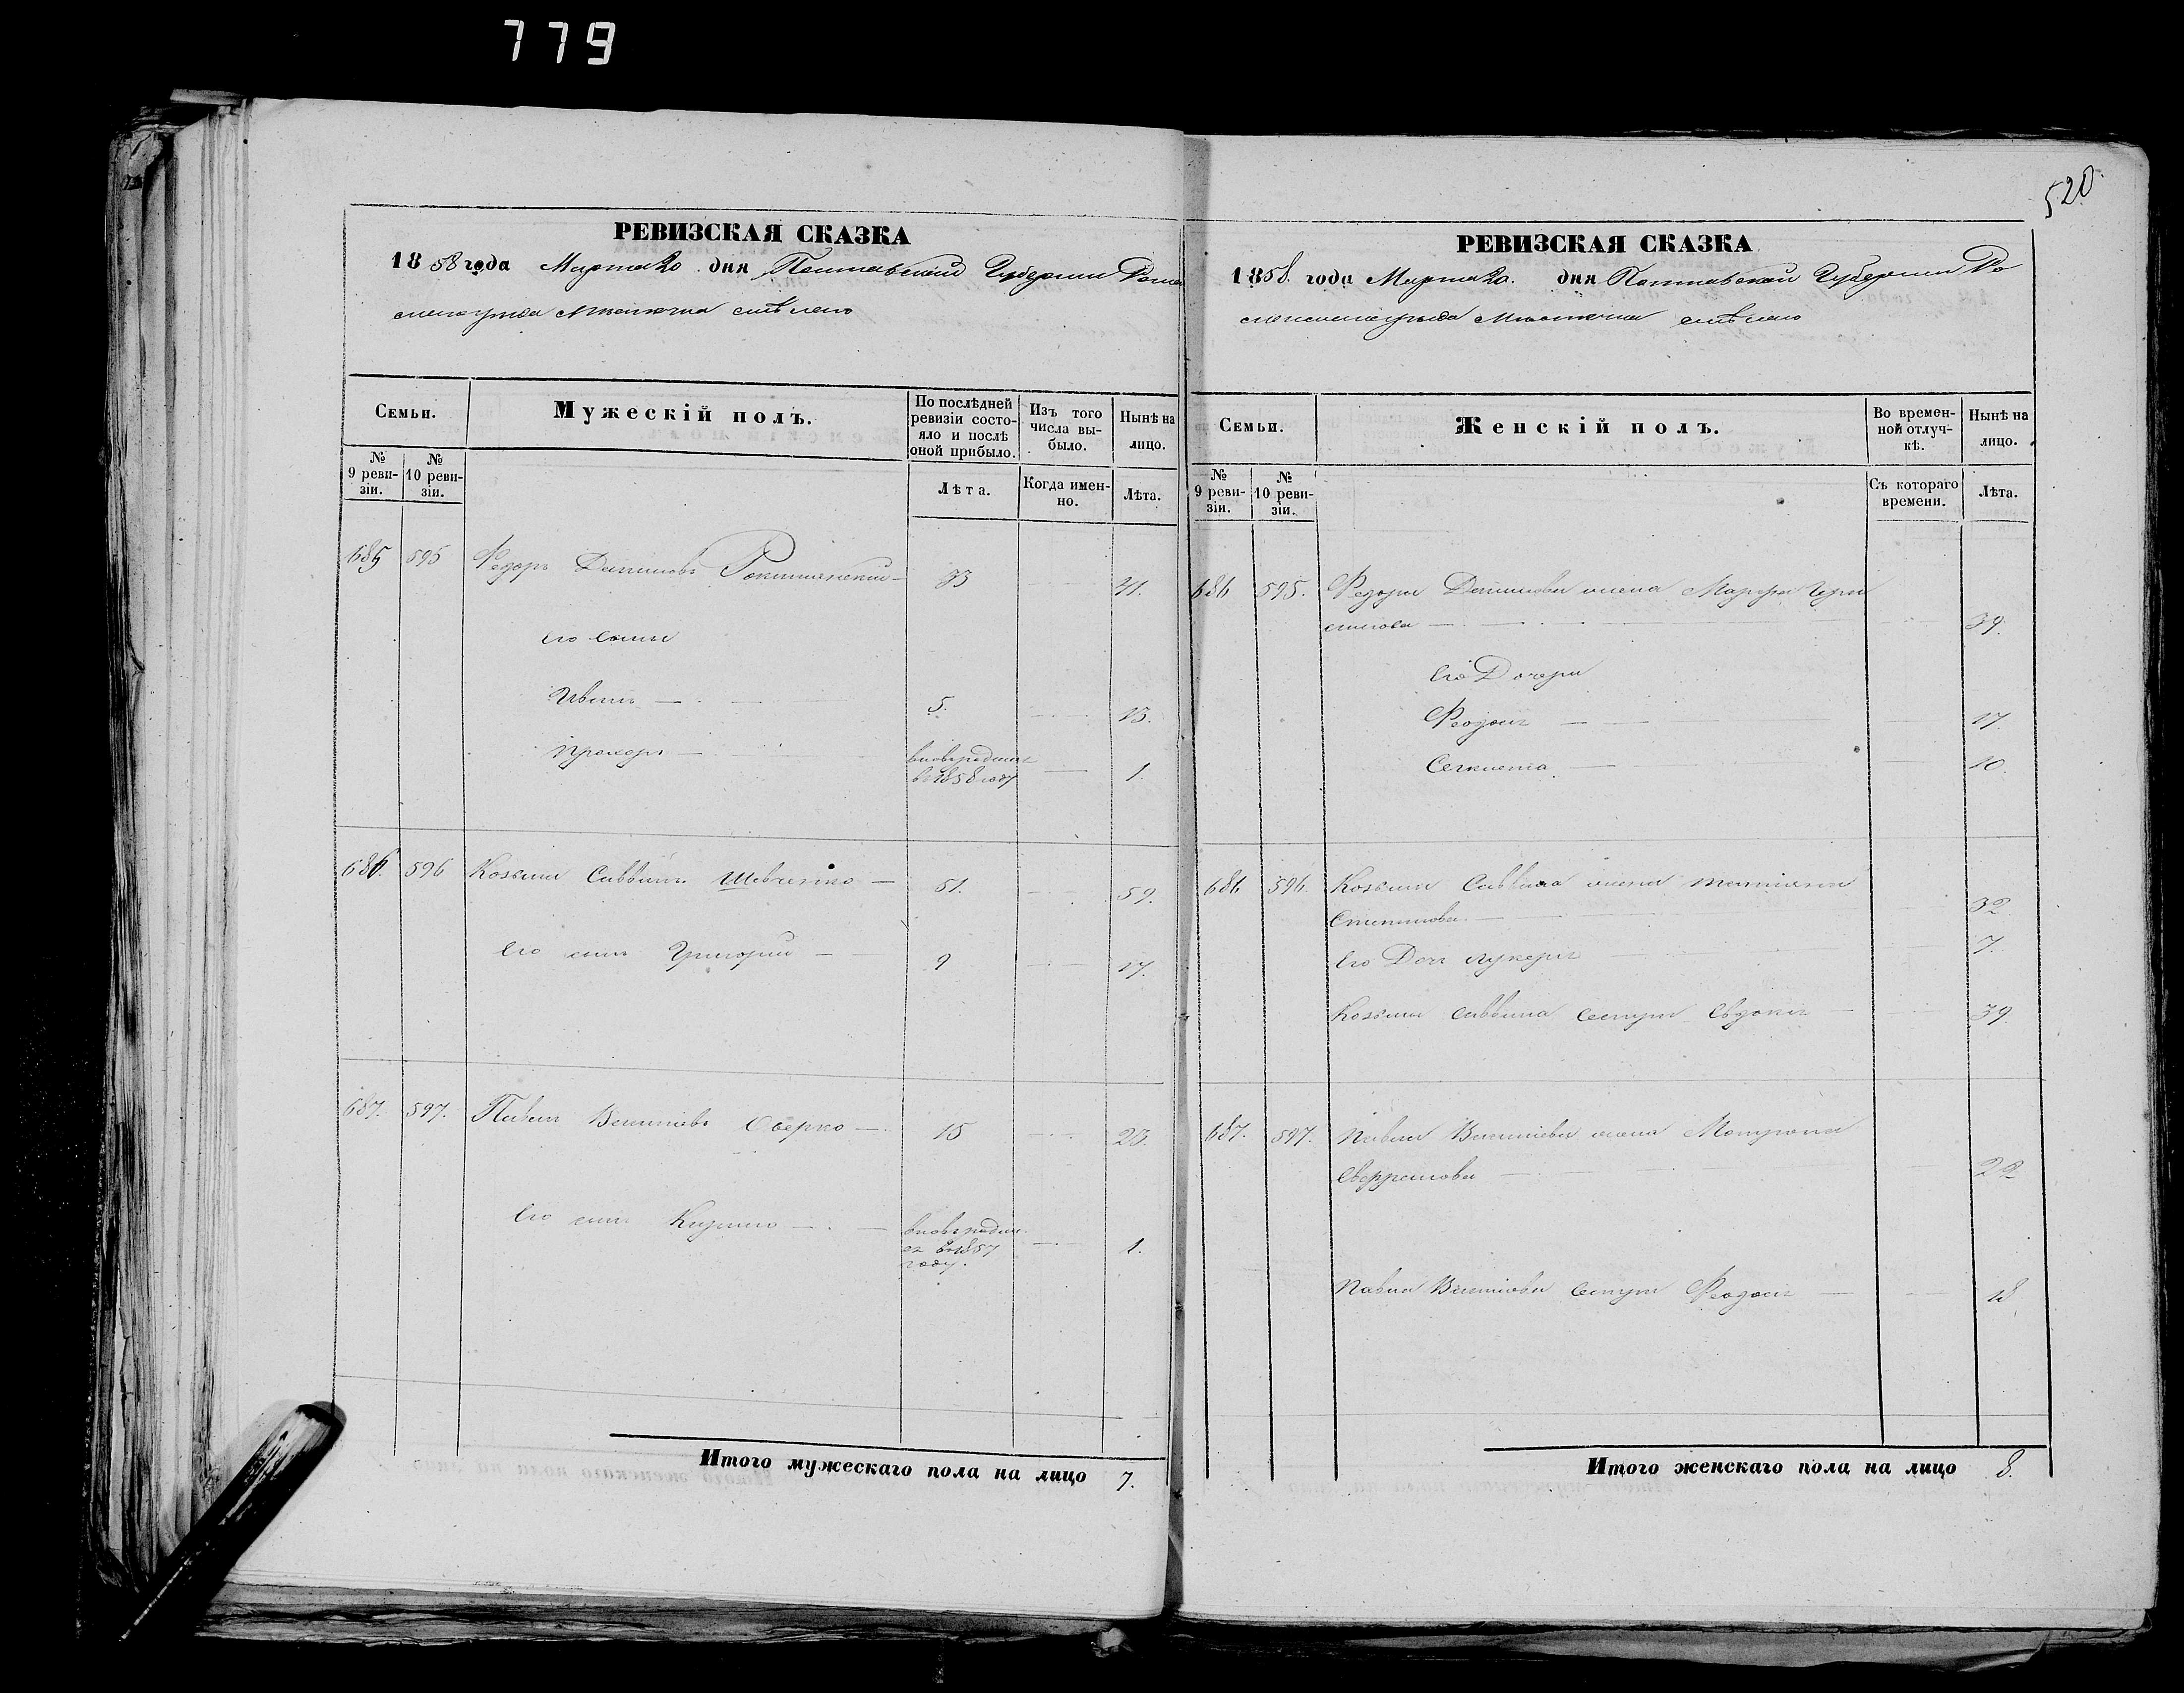 779
520
РЕВИЗСКАЯ СКАЗКА
1858 года Марта 20 дня Полтавской Губернии Роме
уезда Местечка Смѣлого
Семьи.
Мужескій полъ.
По послѣдней ревизіи состояло и послѣ оной прибыло.
Изъ того числа выбыло.
Нынѣ на лицо.
№ 9 ревизіи.
№ 10 ревизіи.
Лѣта.
Когда именно.
Лѣта.
685 595 Федоръ Даниловъ 33 41.
его сыны
Иванъ 5. 13.
Прохоръ вновьрожден в 1858 году 1.
686. 596 Козьма Саввинъ Шевченко 51. 59.
Его сынъ Григорий 9 17.
687. 597. Павелъ Оверко 15 23.
Его сынъ вновьродил
ся в 1857
году. 1.
Итого мужескаго пола на лицо 7.
РЕВИЗСКАЯ СКАЗКА
1858. года Марта 20. дня Полтавской Губернии Ро
менскаго уезда Местечка Смѣлого
Семьи.
Женскій полъ.
Во временной отлучкѣ.
Нынѣ на лицо.
№ 9 ревизіи.
№ 10 ревизіи.
Съ котораго времени.
Лѣта.
686 595. Федора Данилова жена Марфа Гера
симова 39.
Его Дочери
Феодосия 17.
10.
686 596. Козьмы Саввина жена Татияна
Степанова 32
Его Дочь Лукерия 7.
Козьмы Саввина сестра Евдокия 39.
687. 597. Павла жена Мотрона
Евфремова 22
Павла сестра Феодосия 18.
Итого женскаго пола на лицо 8.